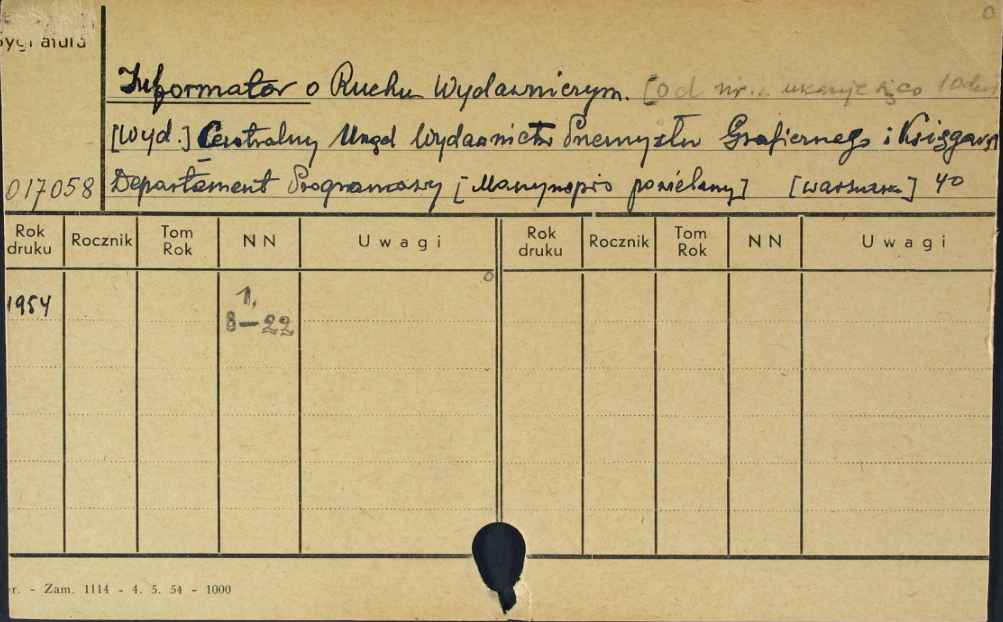 Sygnatura
Informator o Ruchu Wydawniczym. [od nr.
[Wyd.] Centralny Urząd Wydawnictw Przemysłu Graficznego i Księgars
017058 Departament Programowy [Maszynopis powielany] [Warszawa] 4o
Rok druku Rocznik Tom Rok NN Uwagi Rok druku Rocznik Tom Rok NN Uwagi
1954 1,
8-22
r. - Zam. 1114 - 4. 5. 54 - 1000